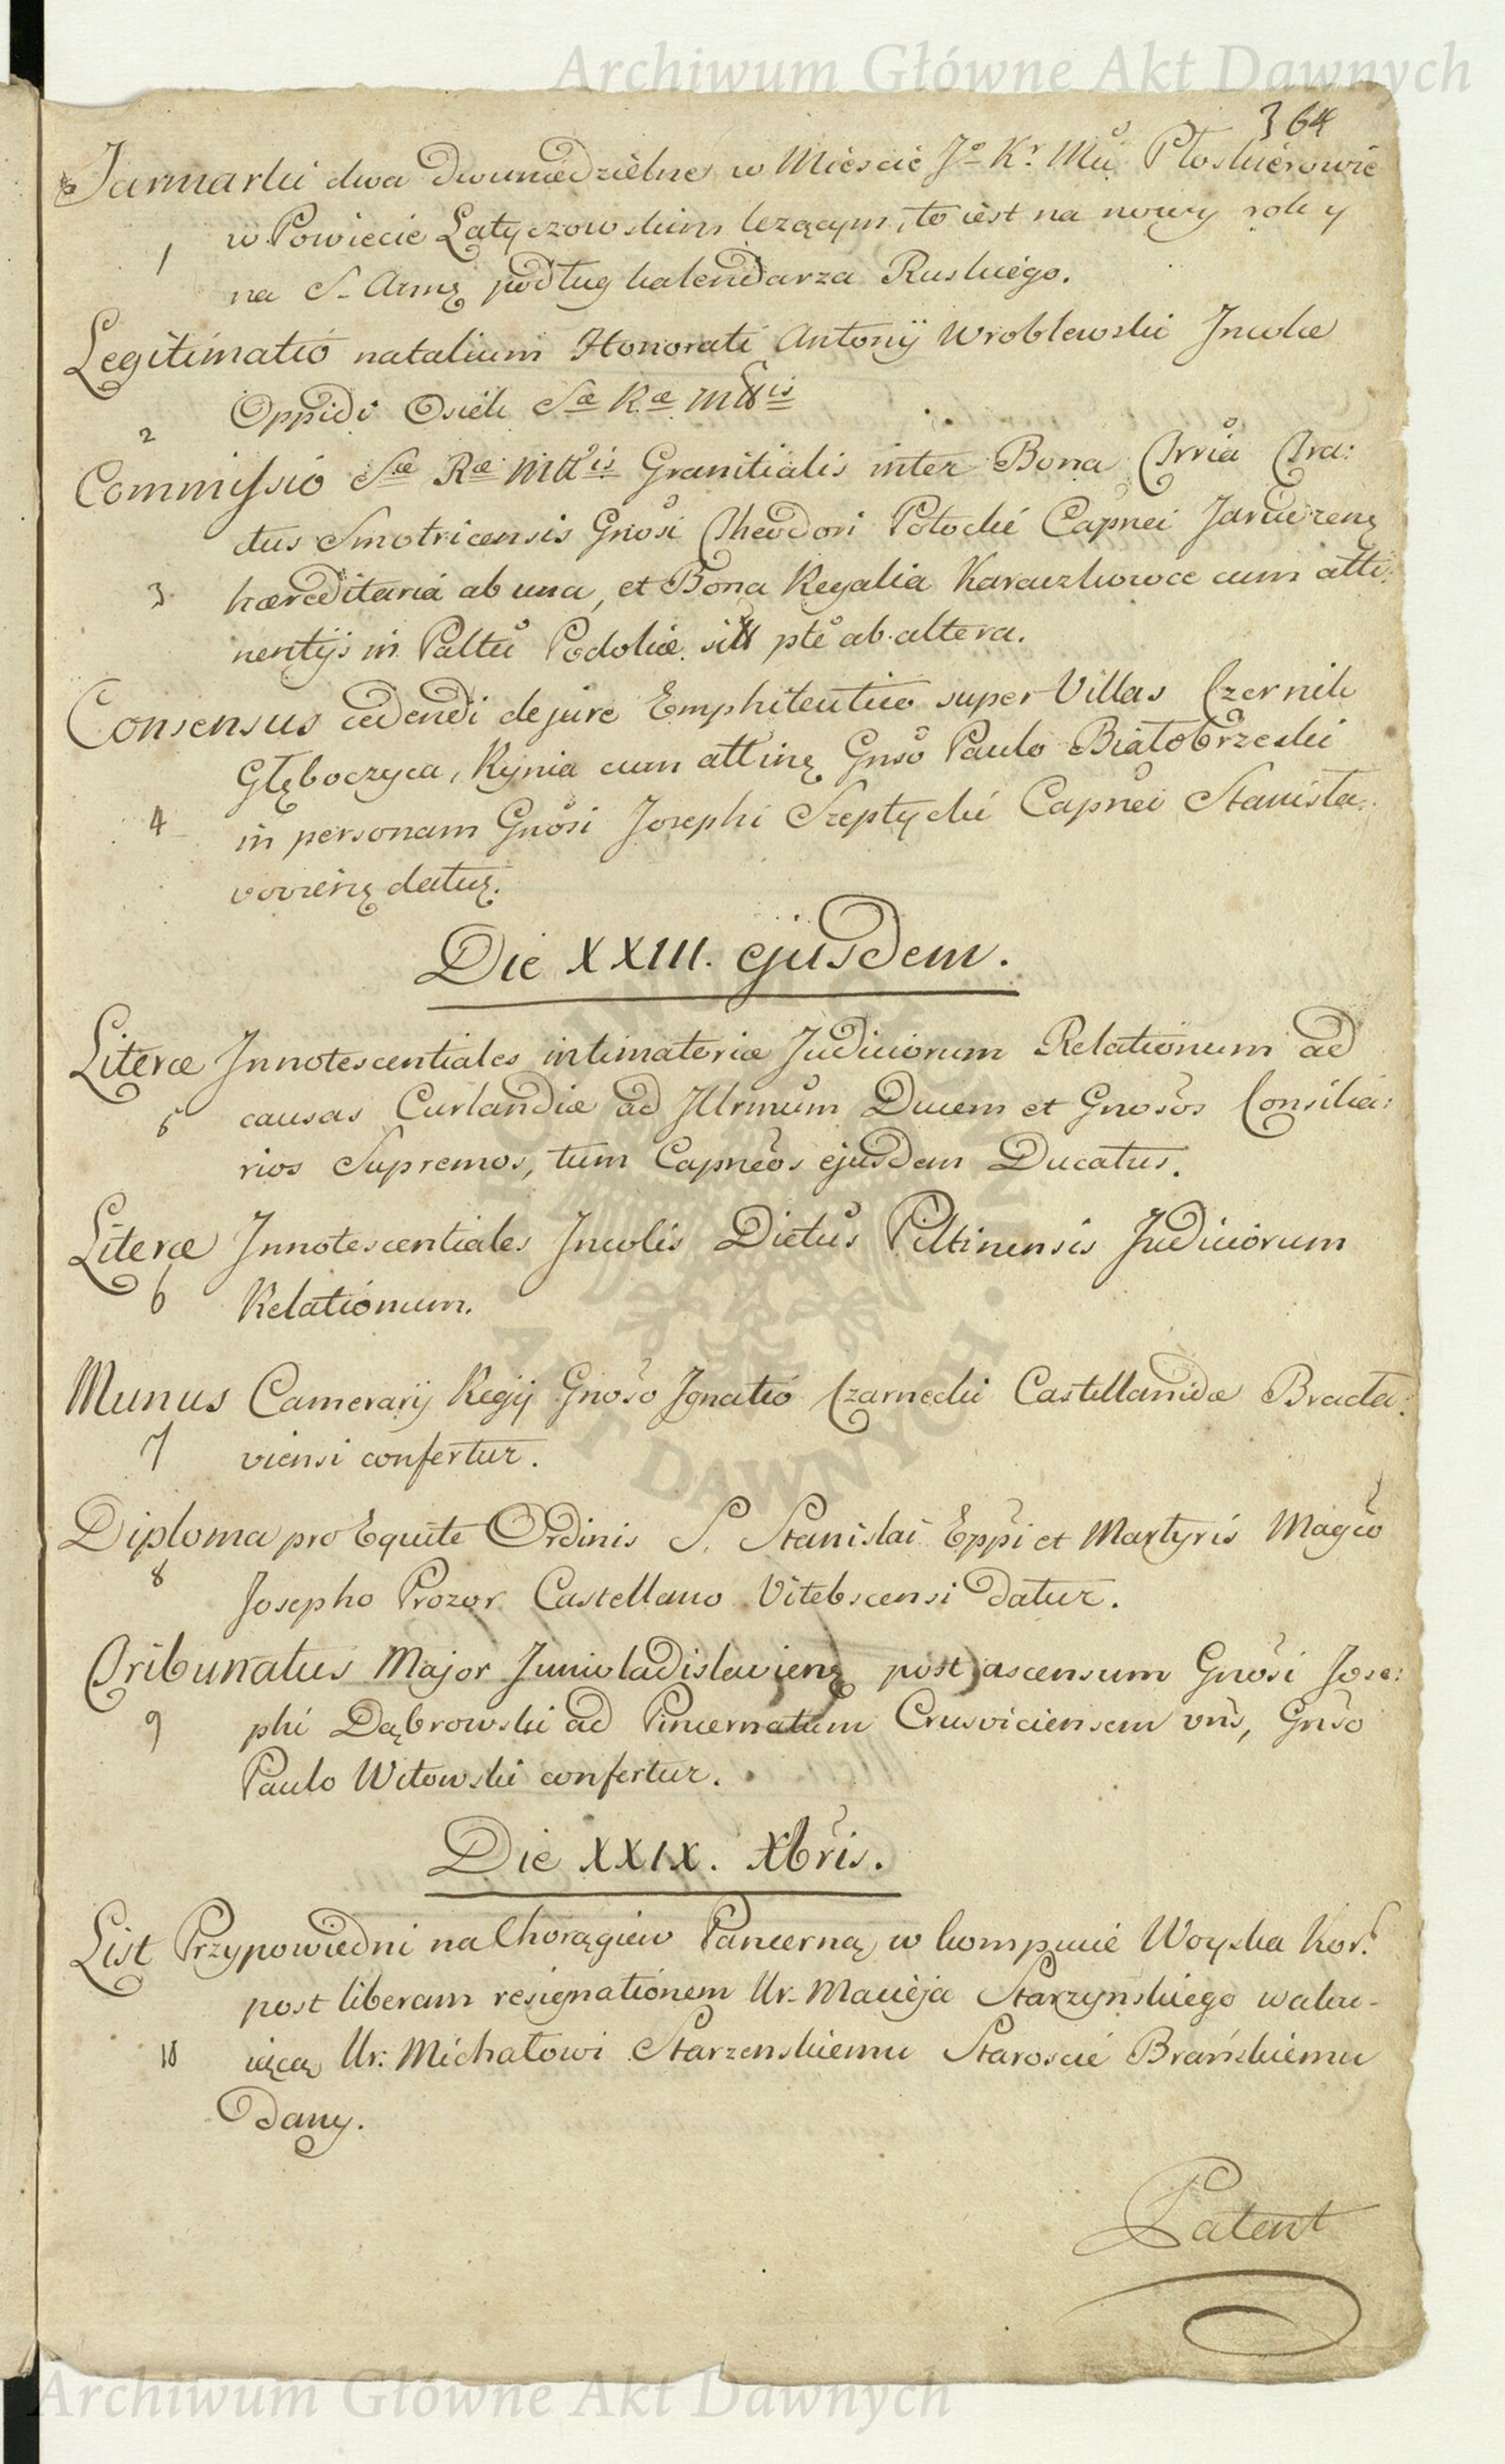 Archiwum Główne Akt Dawnych
364
Jarmarki dwa dwuniedzielne w Miescie Jo Kr Mci Płoskierowie
w Powiecie Latyczowskim lezącym, to iest na nowy rok y
1
na S. Annę podług kalendarza Ruskiego.
Legitimatio natalium Honorati Antonij Wroblewski Incolæ
Oppidi Osiek Sæ Ræ Mttis
2
Commissio Sæ Ræ Mttis Granitialis inter Bona Tria Tra:
ctus Smotricensis Gnosi Theodori Potocki Capnei
3 hæreditaria ab una, et Bona Regalia Karaczkowce cum atti:
nentijs in Paltu Podoliæ sitt pte ab altera.
Consensus cedendi de jure Emphiteutico super Villas Czernik
Głęboczyca, Rynia cum attinę Gnso Paulo Białobrzeski
4 in personam Gnosi Josephi Szeptycki Capnei Stanisła:
vovienę datus.
Die XXIII. ejusdem.
Literæ Innotescentiales intimatoriæ Judiciorum Relationum ad
5 causas Curlandiæ ad Illrmum Ducem et Gnosos Consilia:
rios Supremos, tum Capneos ejusdem Ducatus.
Literæ Innotescentiales Incolis Dictus Piltinensis Judiciorum
6 Relationum.
Munus Camerarij Regij Gnoso Ignatio Czarnecki Castellanidæ Bracla:
7 viensi confertur.
Diploma pro Equite Ordinis S. Stanislai Eppi et Martyris Magco
8
Josepho Prozor Castellano Vitebscensi datur.
Tribunatus Major Juniwladislavienę post ascensum Gnosi Jose:
9 phi Dąbrowski ad Pincernatum Crusviciensem vns, Gnso
Paulo Witowski confertur.
Die XXIX. Xbris.
List Przypowiedni na Chorągiew Pancerną w kompucie Woyska Kor.
post liberam resignationem Ur. Macieja Starzynskiego waku-
10 iącą Ur: Michałowi Starzenskiemu Staroscie Brańskiemu
Dany.
Patent
Archiwum Główne Akt Dawnych